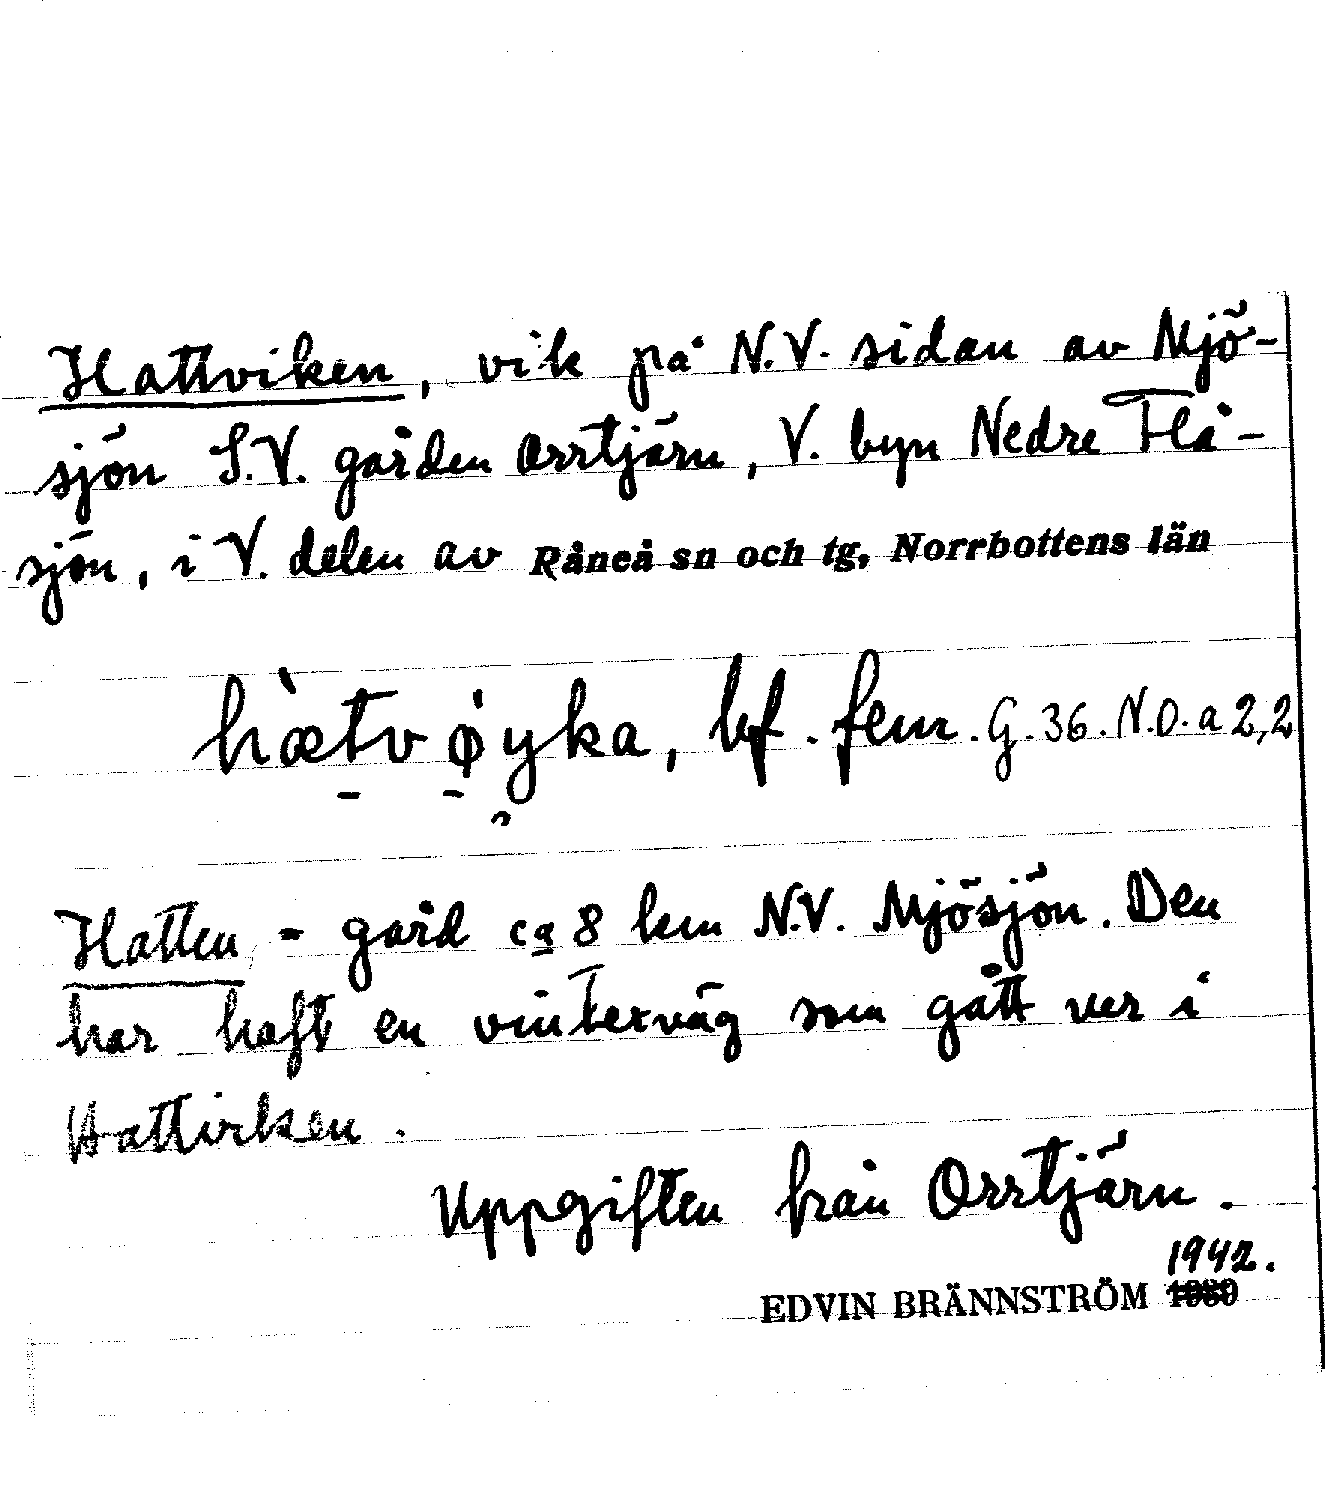 Hattviken, vik på N.V. sidan av Mjö-
sjön S.V. gården Orrtjärn, V. byn Nedre Flå-
sjön, i V. delen av Råneå sn och tg, Norrbottens län
hætvøyka, bf. fem. G.36.N.O.a 2,2
Hatten - gård ca 8 km N.V. Mjösjön. Den
har haft en vinterväg som gått ner i
Hattviken.
Uppgiften från Orrtjärn.
1942.
EDVIN BRÄNNSTRÖM